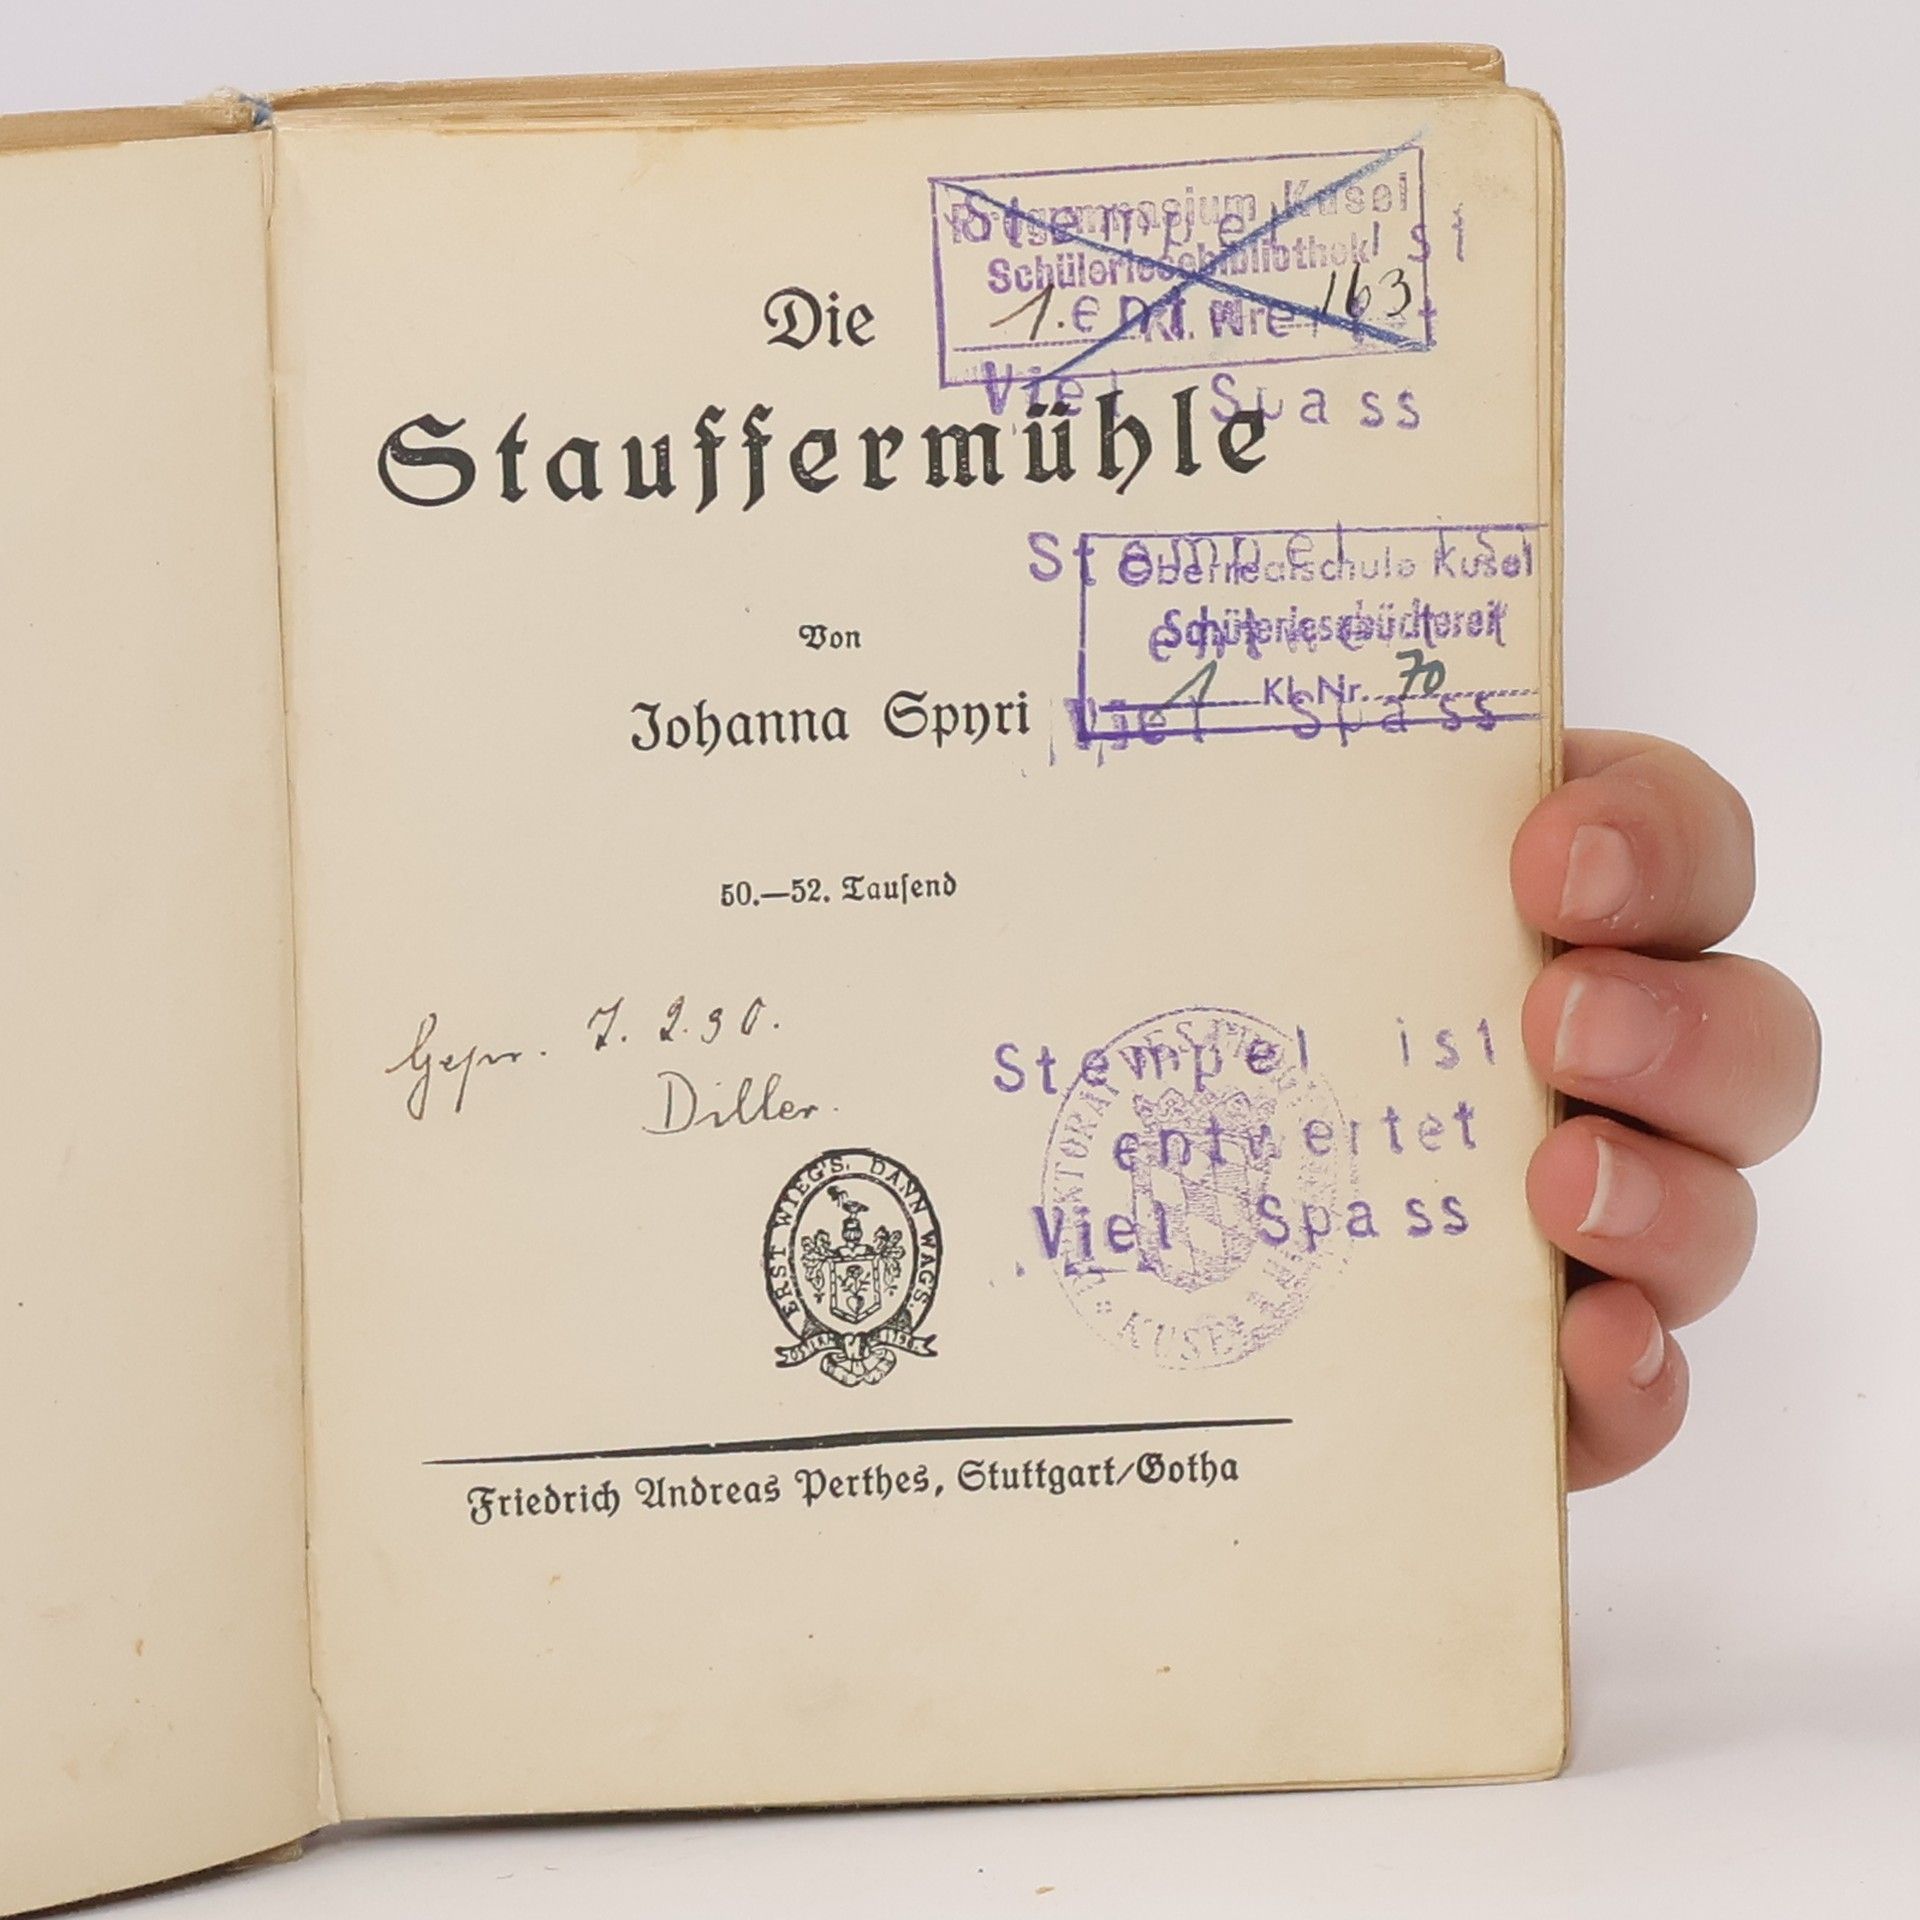 Progymnasium Kusel
Schülerlesebibliothek
1. Kl. Nr. 163
Stempel ist
entwertet
Viel Spass
Die
Stauffermühle
Oberrealschule Kusel
Schülerlesebücherei
1 Kl. Nr. 70
Stempel ist
entwertet
Viel Spass
Von
Johanna Spyri
50.—52. Tausend
Gepr. 7. 2. 30.
Diller.
Stempel ist
entwertet
Viel Spass
KUSEL
ERST WIEG'S, DANN WAG'S.
Friedrich Andreas Perthes, Stuttgart/Gotha